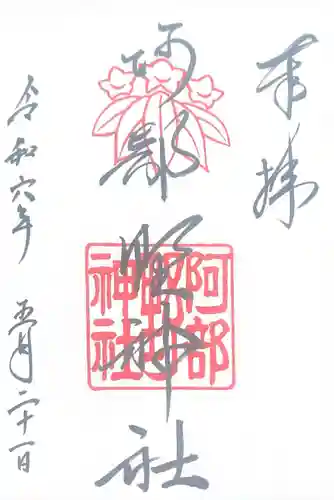 奉拝
阿部野神社
令和六年 五月二十一日
阿部
野
神社